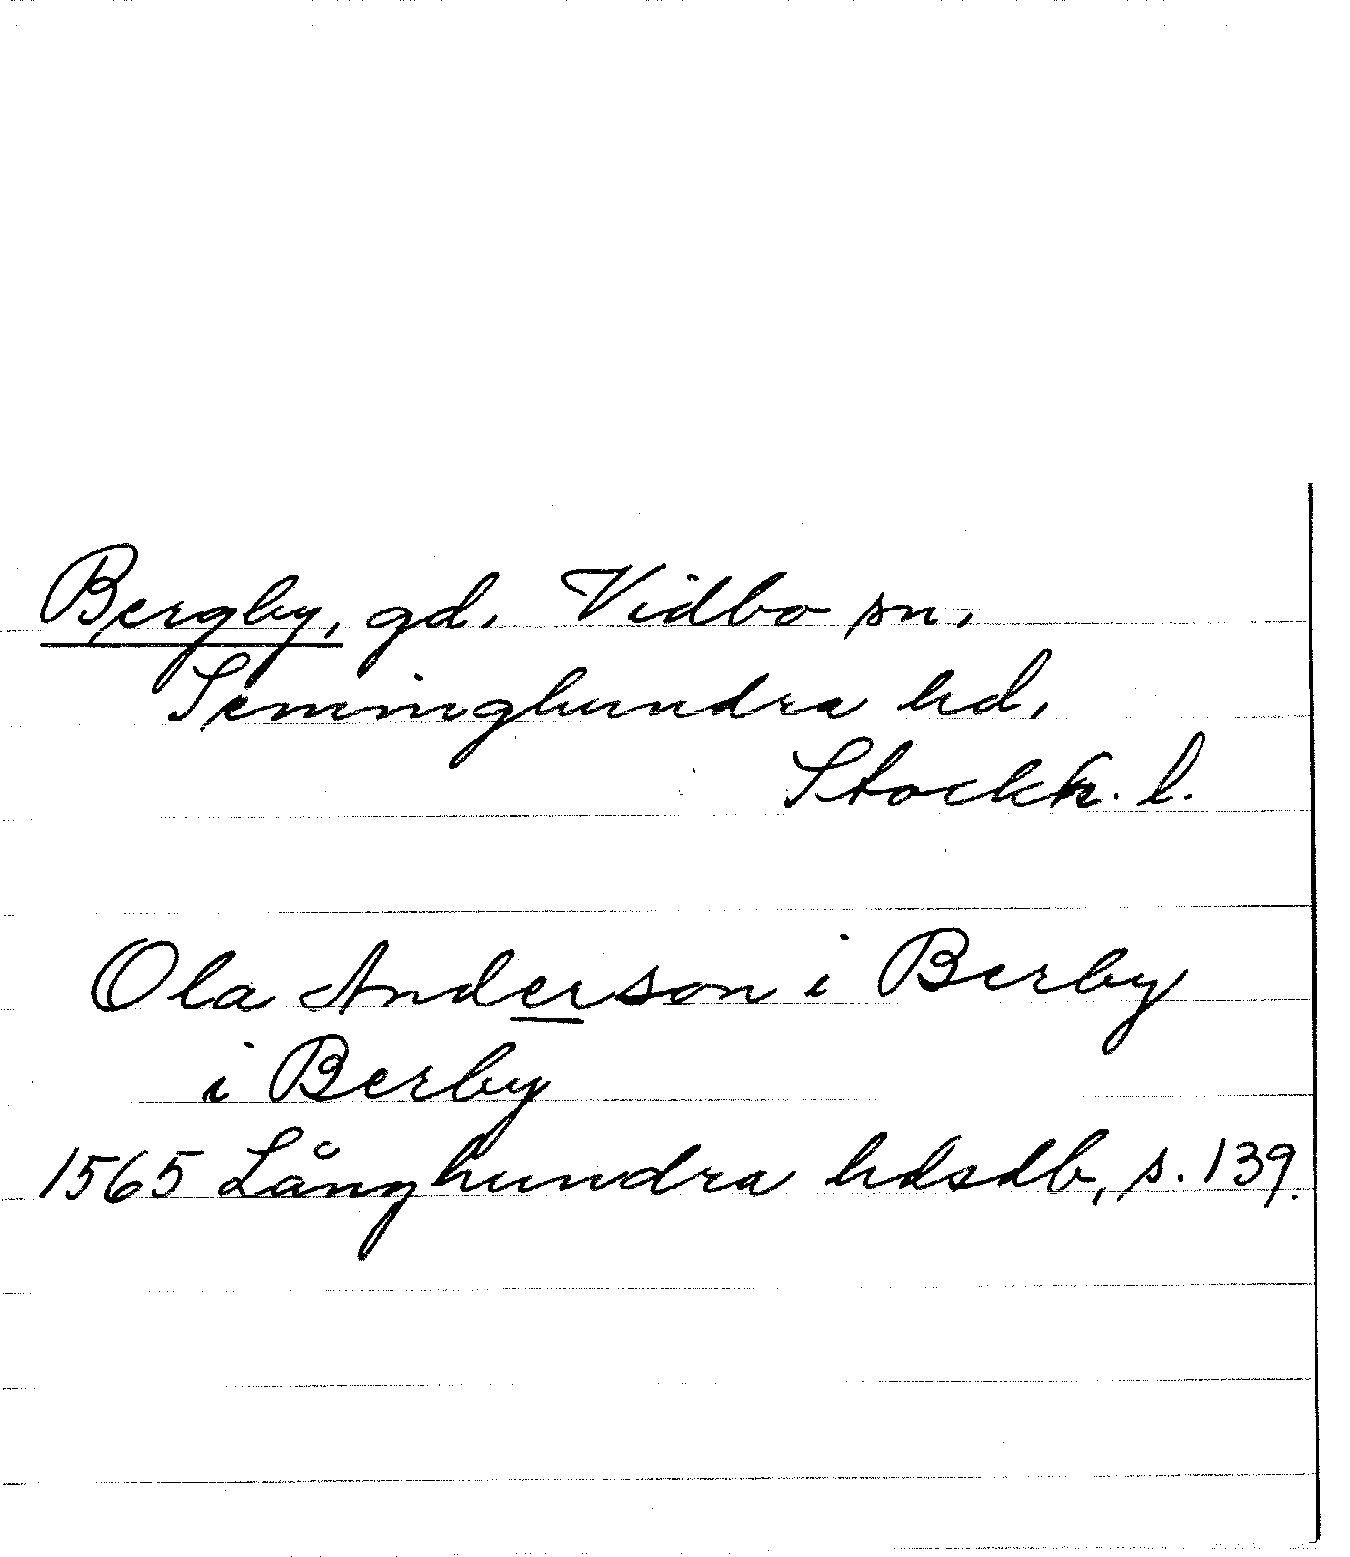 Bergby, gd. Vidbo sn,
Seminghundra hd,
Stockh. l.
Ola Anderson i Berby
i Berby
1565 Långhundra hdsdb, s. 139.